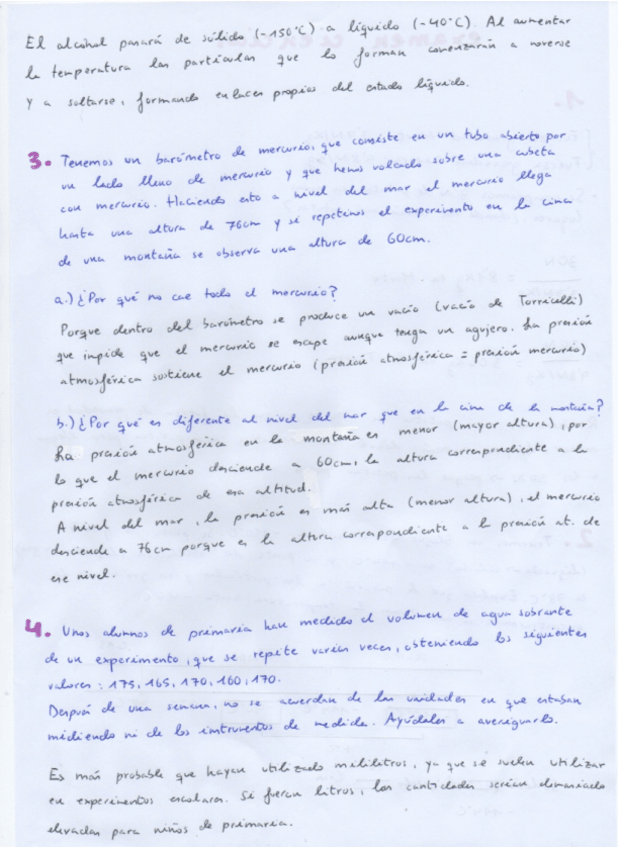 El alcohol pasará de sólido (-150°C) a líquido (-40°C). Al aumentar
la temperatura las partículas que lo forman comenzarán a moverse
y a soltarse, formando enlaces propios del estado líquido.
3. Tenemos un barómetro de mercurio, que consiste en un tubo abierto por
un lado lleno de mercurio y que hemos volcado sobre una cubeta
con mercurio. Haciendo esto a nivel del mar el mercurio llega
hasta una altura de 76cm y si repetimos el experimento en la cima
de una montaña se observa una altura de 60cm.
a.) ¿Por qué no cae todo el mercurio?
Porque dentro del barómetro se produce un vacío (vacío de Torricelli)
que impide que el mercurio se escape aunque tenga un agujero. La presión
atmosférica sostiene el mercurio (presión atmosférica = presión mercurio)
b.) ¿Por qué es diferente al nivel del mar que en la cima de la montaña?
La presión atmosférica en la montaña es menor (mayor altura), por
lo que el mercurio desciende a 60cm, la altura correspondiente a la
presión atmosférica de esa altitud.
A nivel del mar, la presión es más alta (menor altura), el mercurio
desciende a 76cm porque es la altura correspondiente a la presión at. de
ese nivel.
4. Unos alumnos de primaria han medido el volumen de agua sobrante
de un experimento, que se repite varias veces, obteniendo los siguientes
valores: 175, 165, 170, 160, 170.
Después de una semana, no se acuerdan de las unidades en que estaban
midiendo ni de los instrumentos de medida. Ayúdales a averiguarlo.
Es más probable que hayan utilizado mililitros, ya que se suelen utilizar
en experimentos escolares. Si fueran litros, las cantidades serían demasiado
elevadas para niños de primaria.